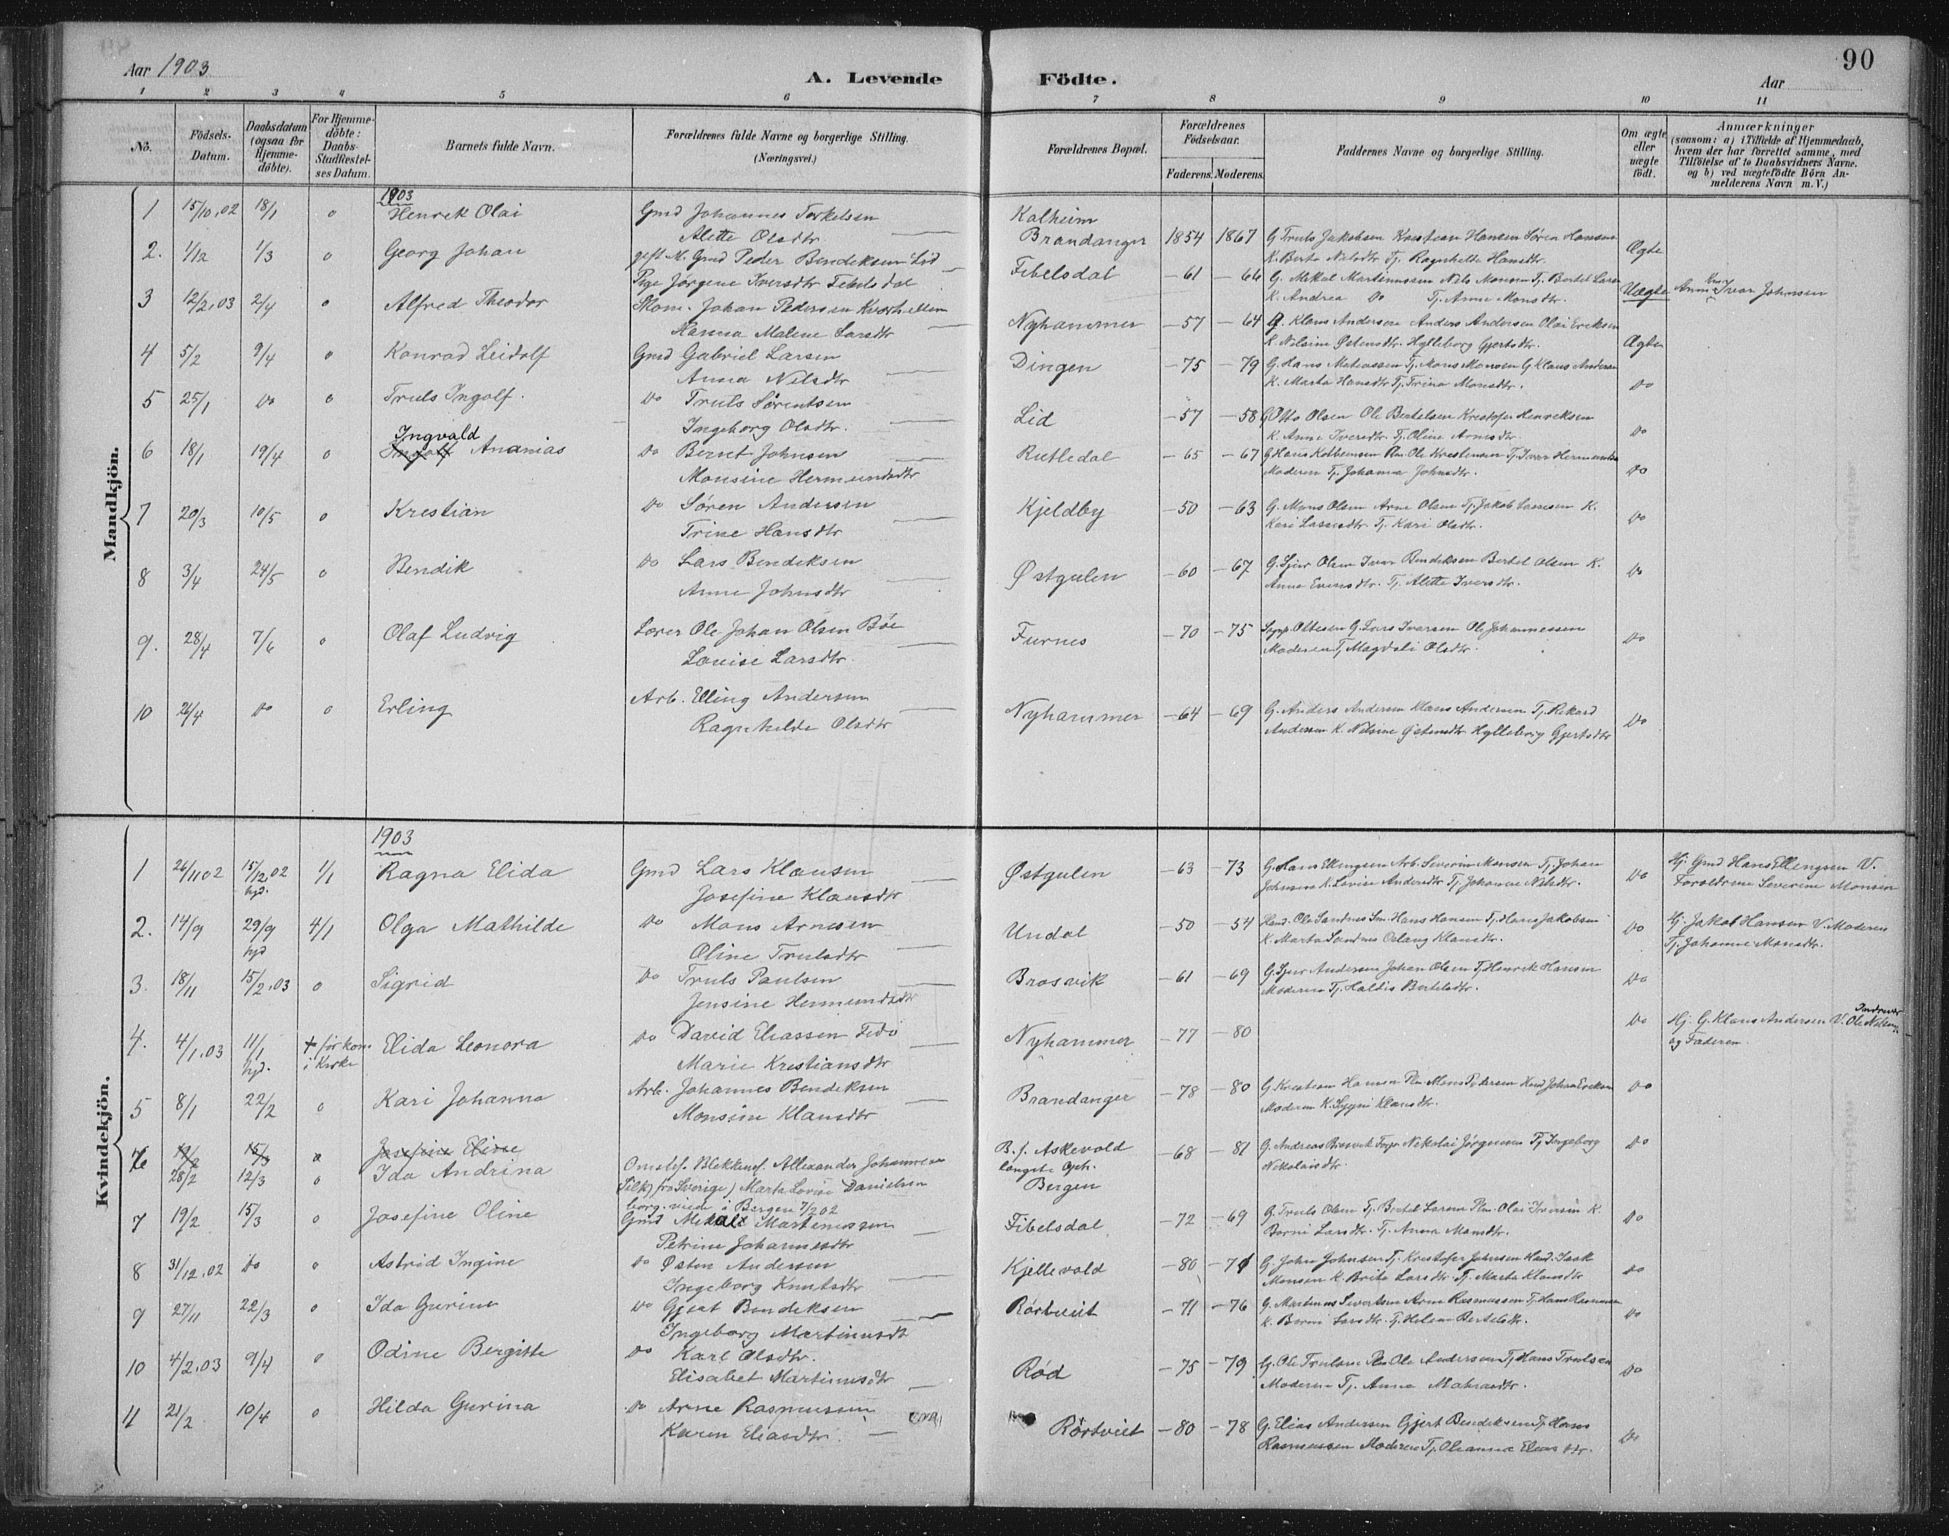 Aar 1903
A. Levende
Födte.
Aar
90
1 2 3 4 5 6 7 8 9 10 11
No.
Födsels-Datum.
Daabsdatum (ogsaa for Hjemmedöbte).
For Hjemmedöbte: Daabs-Stadfæstelses Datum.
Barnets fulde Navn.
Forældrenes fulde Navne og borgerlige Stilling. (Næringsvei.)
Forældrenes Bopæl.
Forældrenes Födselsaar.
Faderens. Moderens.
Faddernes Navne og borgerlige Stilling.
Om ægte eller uægte födt.
Anmærkninger
(saasom: a) i Tilfælde af Hjemmedaab, hvem der har forrettet samme, med Tilföielse af to Daabsvidners Navne. og b) ved uægtefödte Börn Anmelderens Navn m. V.)
Mandkjön.
1903
1 15/10.02 18/1 o Henrik Olai Gmd Johannes Torkelsen Kalheim
Alette Olsdtr. Brandanger 1854 1867 G Truls Jakobsen Kristian Hansen Søren Hansen
K. Berta Nilsdtr Tj. Ragnhilde Hansdtr. Ægte
2. 1/12 1/3 o Georg Johan gift M. Gmd Peder Bendeksen Lid
Pige Jørgine Iversdtr Fibelsdal Fibelsdal -61 -66 G. Mikal Martinussen Nils Monsen Tj. Bertel Larsen
K. Andrea Do Tj. Anne Monsdtr. Uægte Ivar Johnsen
3 12/2.03 2/4 o Alfred Theodor Skom. Johan Pedersen
Hanna Malene Larsdtr Nyhammer -57 -64 G. Klaus Andersen Anders Andersen Olai Eriksen
K Nilsine Østensdtr. Hylleborg Gjertsdtr. Ægte
4 5/2 9/4 o Konrad Leidolf Gmd Gabriel Larsen
Anna Nilsdtr Dingen -75 -79 G. Hans Matiassen Tj. Mons Monsen G. Klaus Andersen
K. Marta Hansdtr Tj. Trina Monsdtr. Do
5 25/1 Do o Truls Ingolf. Do Truls Sørentsen
Ingeborg Olsdtr. Lid -57 -58 G Otto Olsen Ole Bertelsen Kristofer Henriksen
K. Anne Iversdtr Tj. Oline Arnesdtr. Do
Ingvald
6 18/1 19/4 o Ingolf Ananias Do Bernt Johnsen
Monsine Hermundsdtr Rutledal -65 -67 G Hans Kolbensen Pm Ole Kristensen Tj. Ivar Hermundsen
Moderen Tj. Johanna Johnsdtr. Do
7 20/3 10/5 o Kristian Do Søren Andersen
Trine Hansdtr Kjeldby -50 -63 G. Mons Olsen Arne Olsen Tj. Jakob K.
Kari Lassesdtr Tj. Kari Olsdtr. Do
8 3/4 24/5 o Bendik Do Lars Bendeksen
Anne Johnsdtr Østgulen -60 -67 G. Sjur Olsen Ivar Bendeksen Bertel Olsen K.
Anne Eversdtr. Tj. Alette Iversdtr. Do
9. 28/4 7/6 o Olaf Ludvig Lærer Ole Johan Olsen Bøe
Lovise Larsdtr. Furnes -70 -75 G. Lars Ivarsen Ole Johannessen
Moderen Tj. Magdli Olsdtr. Do
10 26/4 Do o Erling Arb. Elling Andersen
Ragnhilde Olsdtr Nyhammer -64 -69 G. Anders Andersen Klaus Andersen Tj. Rikard
Andersen K. Nilsine Østensdtr Hylleborg Gjertsdtr Do
Kvindekjön.
1903
1 26/11 02 15/12.02 hjd. 1/1 Ragna Elida Gmd Lars Klausen
Josefine Klausdtr Østgulen -63 -73 G. Hans Ellingsen Arb. Severin Monsen Tj. Johan
Johnsen K. Lovise Andersdtr Tj. Johanne Nilsdtr. Do Hj. Gmd Hans Ellengsen V.
Forældrene Severine Monsen
2. 14/9 29/9 hjd 4/1 Olga Mathilde Do Mons Arnesen
Oline Trulsdtr Undal -50 -54 Hand. Ole Sandnes Sm. Hans Hansen Tj. Hans Jakobsen
K. Marta Sandnes Oslaug Klausdtr. Do Hj. Jakob Hansen V. Moderen
Tj. Johanne Monsdtr.
3. 18/11 15/2.03 o Sigrid Do Truls Paulsen
Jensine Hermundsdtr Brosvik -61 -69 G. Sjur Andersen Johan Olsen Tj Henrik Hansen
Moderen Tj. Haldis Bertelsdtr. Do
4. 4/1.03 11/1 hjd. + før kon. i Kirke Elida Leonora Do David Eliassen Fedø
Marie Kristiansdtr Nyhammer -77 -80 Do Hj. G. Klaus Andersen V. Ole Nilsen
og Faderen.
5 8/1 22/2 o Kari Johanna Arb. Johannes Bendeksen
Monsine Klausdtr Brandanger -78 -80 G. Kristian Hansen Pm Mons Pedersen Johan Eriksen
Moderen K. Sygni Klausdtr. Do
19/2 15/3 o Josefine Eline
6 28/2 12/3 o Ida Andrina Omstrf. Blekksl. Allexander Johannesen B. f. Askevold -68 -81 G. Andreas Brosvik Nikolai Jørgensen Tj Ingeborg Do
(Silk) fra Sverige) Marta Lovise Danielsen langste Oph. Nikolaisdtr.
borg. viede i Bergen 7/2 02 Bergen
7 19/2 15/3 o Josefine Oline Gmd Mikal Martinussen
Petrine Johannesdtr Fibelsdal -72 -69 G. Truls Olsen Tj. Bertel Larsen Pm. Olai Iversen K.
Borni Larsdtr. Tj. Anna Monsdtr. Do
8 31/12.02 Do o Astrid Ingine Do Østen Andersen
Ingeborg Knutsdtr Kjellevold -80 -71 G. John Johnsen Tj. Kristofer Johnsen Hand. Isak
Monsen K. Brita Larsdtr Tj. Marta Klausdtr Do
9 27/11 22/3 o Ida Gurine Do Gjert Bendeksen
Ingeborg Martinusdt Rørtveit -71 -76 G. Martinus Sivertsen Arne Rasmussen Tj. Hans Rasmussen
K. Borni Larsdtr. Tj. Helene Bertelsdtr. Do
10 4/2.03 9/4 o Odine Bergitte Do Karl Olsdtr.
Elisabet Martinusdtr Rød -75 -79 G. Ole Trulsen Pm Ole Andersen Tj Hans Trulsen
Moderen Tj. Anna Do
11 21/2 10/4 o Hilda Gurina Do Arne Rasmussen
Karen Eliasdtr. Rørtveit -80 -78 G. Elias Andersen Gjert Bendeksen Tj Hans
Rasmussen Moderen Tj. Oleanna Elias dtr. Do